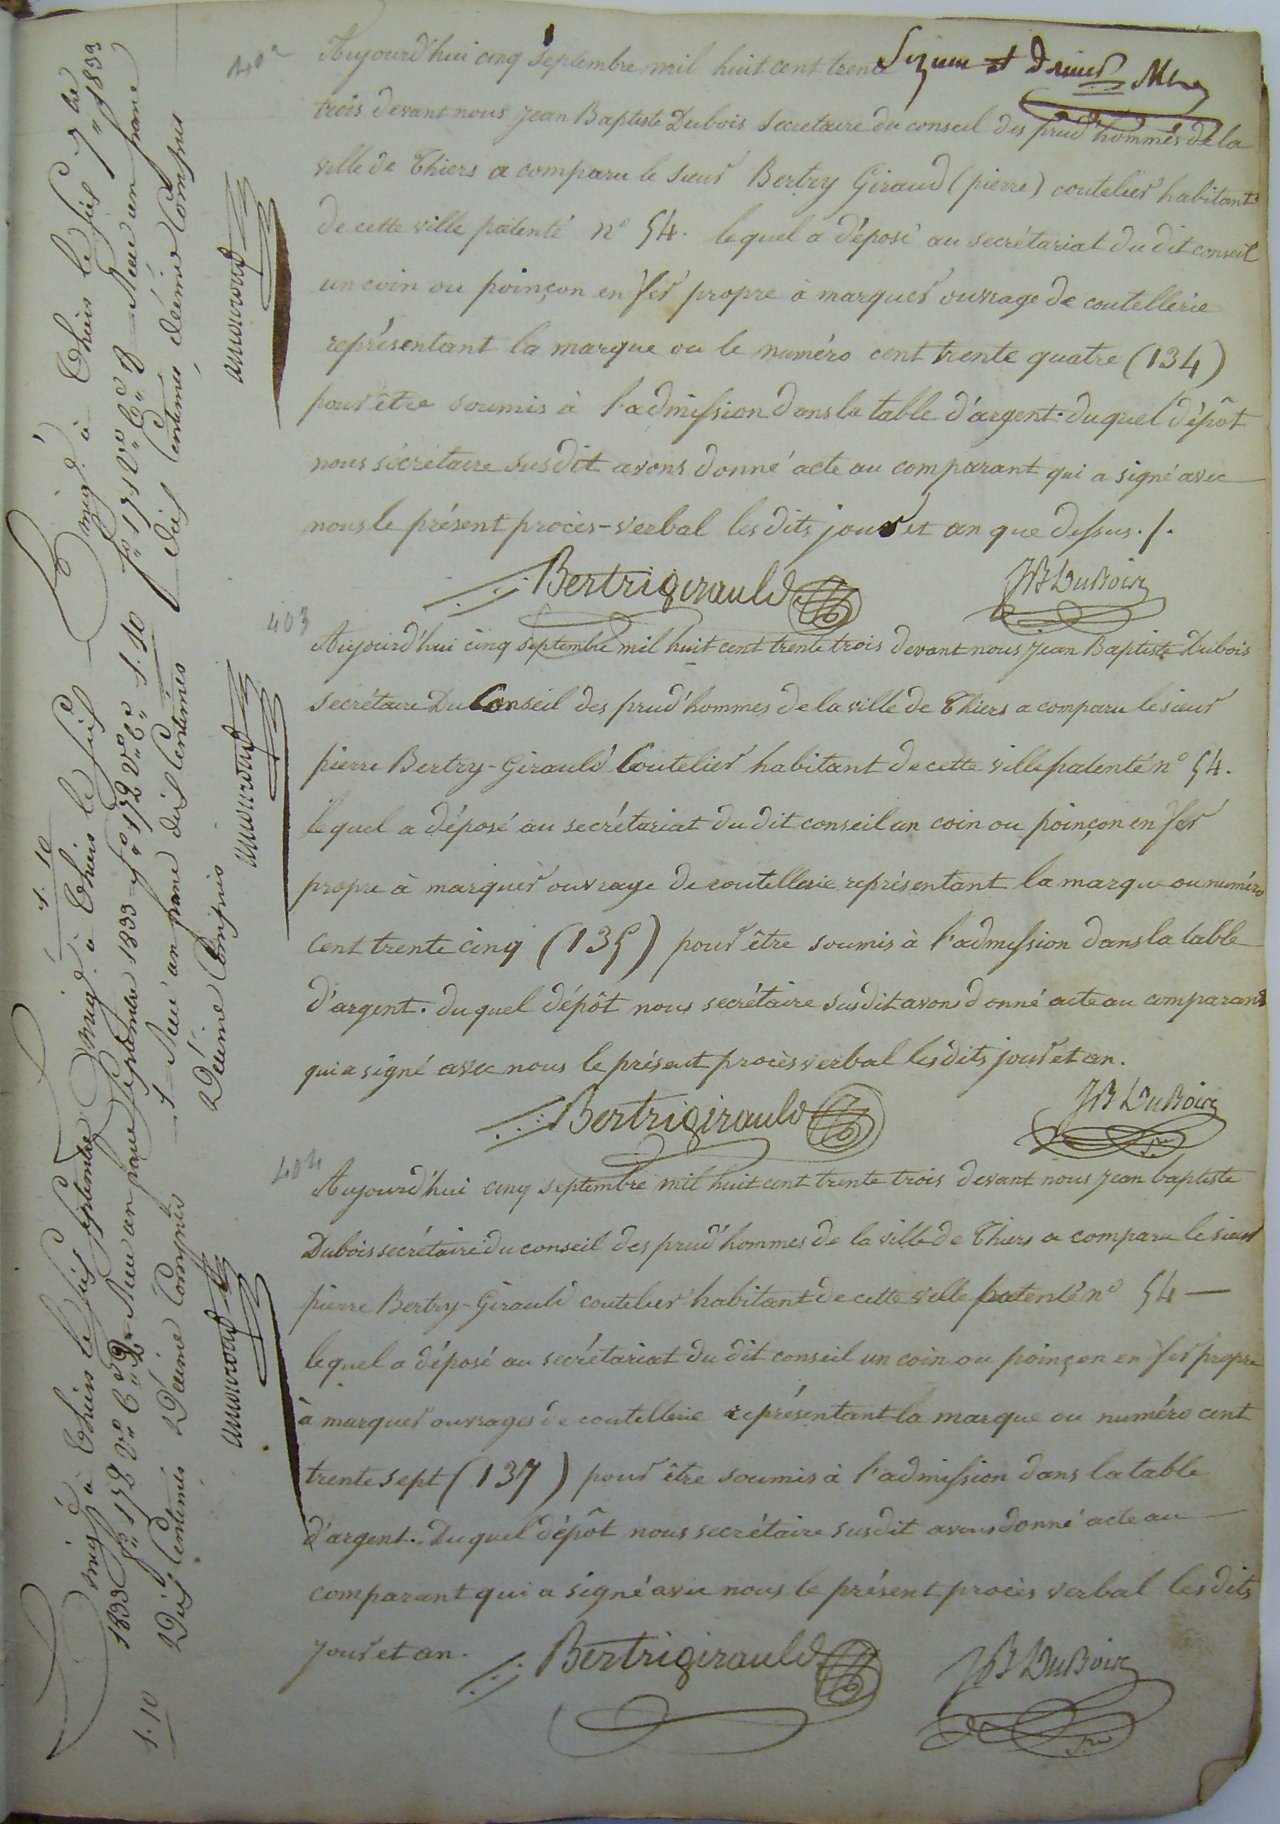 402
Aujourd'hui cinq septembre mil huit cent trente
trois devant nous Jean Baptiste Dubois secretaire du conseil des prud'hommes de la
ville de Thiers a comparu le sieur Bertry Giraud (pierre) coutelier habitant
de cette ville patenté n° 54. lequel a déposé au secrétariat du dit conseil
un coin ou poinçon en fer propre à marquer ouvrage de coutellerie
représentant la marque ou le numéro cent trente quatre (134)
pour être soumis à l'admission dans la table d'argent. duquel dépôt
nous sécrétaire susdit avons donné acte au comparant qui a signé avec
nous le présent procès-verbal les dits jour et an que dessus ./.
Bertrigirauld JB DuBois
403
Aujourd'hui cinq septembre mil huit cent trente trois devant nous Jean Baptiste Dubois
secrétaire Du Conseil des prud'hommes de la ville de Thiers a comparu le sieur
pierre Bertry-Girauld Coutelier habitant de cette ville patenté n° 54.
lequel a déposé au secrétariat du dit conseil un coin ou poinçon en fer
propre à marquer ouvrage de coutellerie représentant la marque ou numéro
Cent trente cinq (135) pour être soumis à l'admission dans la table
d'argent. duquel dépôt nous secrétaire susdit avons donné acte au comparant
qui a signé avec nous le présent procès verbal les dits jour et an.
Bertrigirauld JB DuBois
404
Aujourd'hui cinq septembre mil huit cent trente trois devant nous Jean baptiste
Dubois secrétaire du conseil des prud'hommes de la ville de Thiers a comparu le sieur
pierre Bertry-Girauld coutelier habitant de cette ville patenté n° 54 —
lequel a déposé au secrétariat du dit conseil un coin ou poinçon en fer propre
à marquer ouvrages de coutellerie représentant la marque ou numéro cent
trente sept (137) pour être soumis à l'admission dans la table
d'argent. Duquel dépôt nous secrétaire susdit avons donné acte au
comparant qui a signé avec nous le présent procès verbal les dits
jour et an.
Bertrigirauld JB DuBois
à Thiers le six 7bre 1833
f° 171 v° c° 8 Reçu un franc
dix centimes décime Compris
1.10
à Thiers le six
septembre 1833 f° 172 v° c° 1
Reçu un franc dix centimes
Décime Compris
1.10
à Thiers le six septembre
1833 f° 172 v° c° 2 Reçu un franc
Dix centimes Décime Compris
1.10